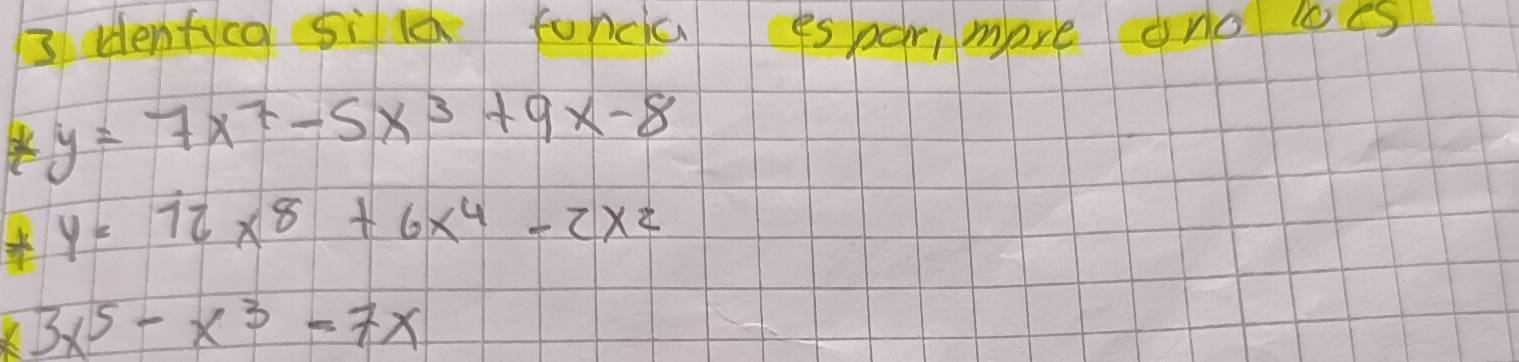 3 Identifica si la funcia es par, impre o no lo es
* y = 7x⁷ - 5x³ + 9x - 8
* y = 12x⁸ + 6x⁴ - 2x²
* 3x⁵ - x³ - 7x